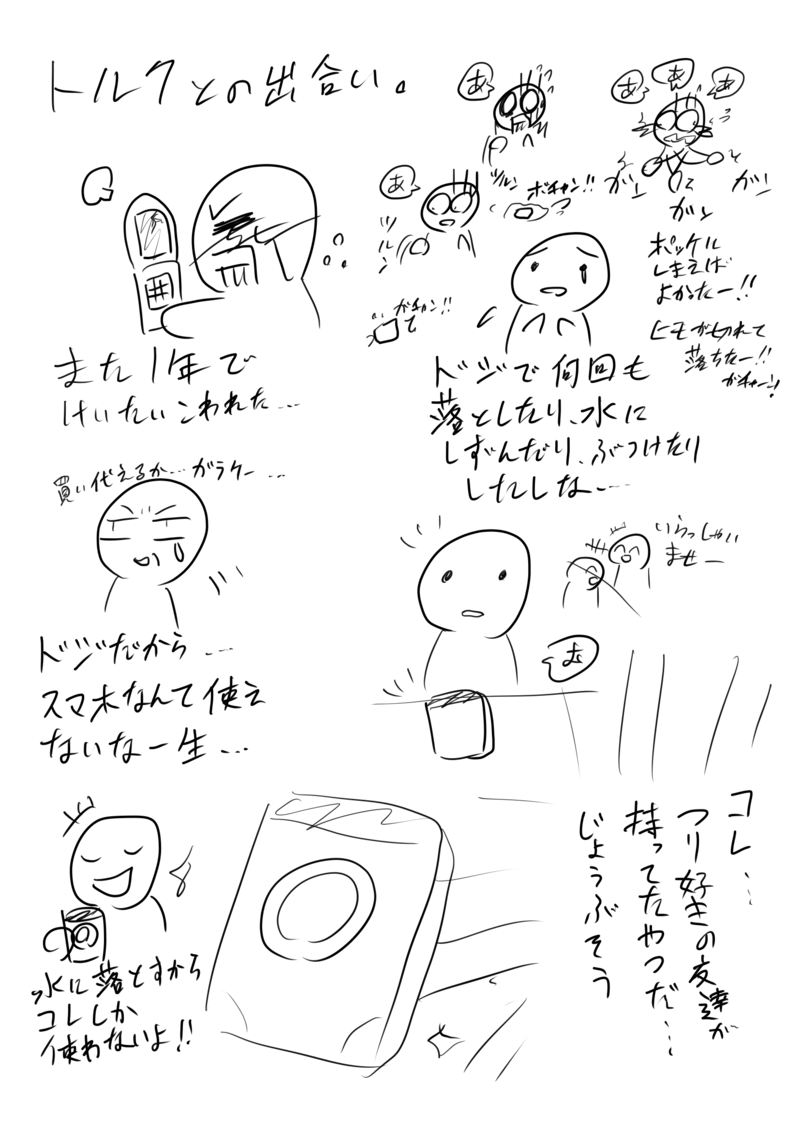 トルクとの出合い。
また1年で
けいたいこわれた…
あ
ツルン
ガチャン!!
あ
ツルン
ボチャン!!
あ
あ
あ
ガン
ガン
ガン
ポッケに
しまえば
よかったー!!
ヒモが切れて
落ちたー!!
ガチャーン!
ドジで何回も
落としたり、水に
しずんだり、ぶつけたり
したしな…
買い代えるか…ガラケー…
ドジだから…
スマホなんて使え
ないな一生…
いらっしゃい
ませー
む
コレ…
つり好きの友達が
持ってたやつだ…
じょうぶそう
水に落とすから
コレしか
使わないよ!!